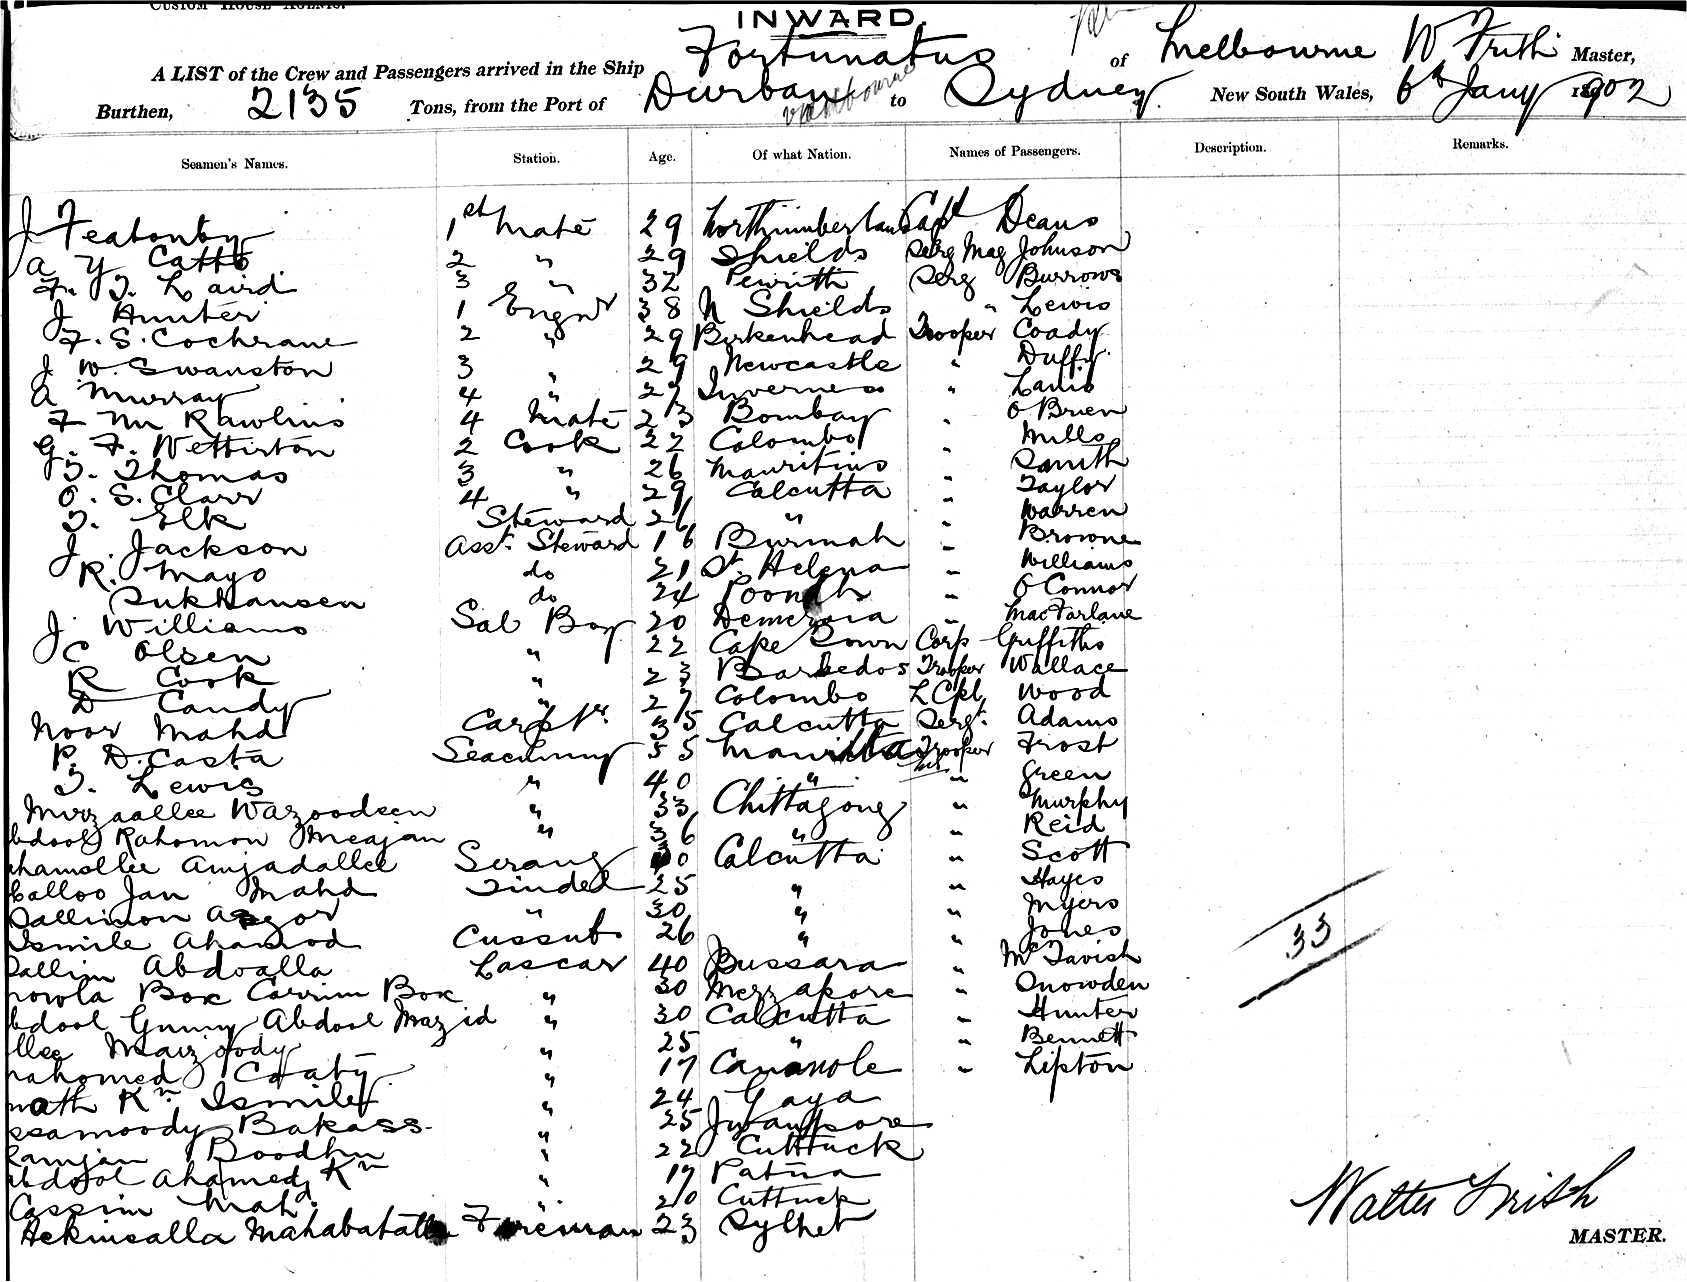 CUSTOM HOUSE AGENTS.
INWARD.
A LIST of the Crew and Passengers arrived in the Ship Fortunatus of Melbourne W Frith Master,
Burthen, 2135 Tons, from the Port of Durban via Melbourne to Sydney New South Wales, 6th Jany 1902
Seamen's Names. Station. Age. Of what Nation. Names of Passengers. Description. Remarks.
J Featonby 1st Mate 29 Northumberland Capt Deans
A Y Catto 2 " 29 Shields Serg Maj Johnson
F. T. Laird 3 " 32 Penrith Serg Burrows
J Hunter 1 Engnr 38 N Shields " Lewis
F. S. Cochrane 2 " 29 Birkenhead Trooper Coady
J W. Swanston 3 " 29 Newcastle " Duffy
A Murray 4 " 27 Inverness "
F M Rawlins 4 Mate 23 Bombay " O'Brien
G. F. Wettirton 2 Cook 22 Colombo " Mills
T. Thomas 3 " 26 Mauritius " Smith
O. S. Clarr 4 " 29 Calcutta " Taylor
T. Elk Steward 26 " " Warren
J. Jackson Asst. Steward 16 Burmah " Browne
R. Mayo do 21 St. Helena " Williams
do 24 Poonah " O'Connor
J Williams Sal Boy 20 Demerara " MacFarlane
C Olsen " 22 Cape Town Corp Griffiths
R Cook " 23 Barbedos Trooper Wallace
D Candy " 27 Colombo L Cpl Wood
Noor Mahd Carptr. 35 Calcutta Sergt. Adams
P. D. Casta Seacunny 55 Manilla Trooper Frost
T. Lewis " 40 " " Green
Mirzaallee Wazoodeen " 33 Chittagong " Murphy
bdool Rahomon Meajan " 36 " " Reid
hamollee Amjadallee Serang 30 Calcutta " Scott
Calloo Jan Mahd Tindel 25 " " Hayes
Sallimon Asgor " 30 " " Myers
Ismile Ahamod Cussub 26 " " Jones
Sallim Abdoalla Lascar 40 Bussara " McTavish
howla Box Carrim Box " 30 Mezzapore " Snowden
bdool Gunny Abdool Mazid " 30 Calcutta " Hunter
llee Maizoody " 25 " " Bennett
mahomed Coaty " 17 Cananole " Lipton
math Kn Ismiley " 24 Gaya
ssamoody Bakass " 25
Ramjan Boodhu " 22 Cuttuck
bdool Ahamed Kn " 17 Patna
Cassim Mahd. " 20 Cuttuck
Hekinsalla Mahabatalla Fireman 23 Sylhet
33
Walter Frith
MASTER.